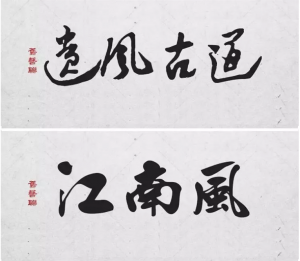 遗风古道
江南風